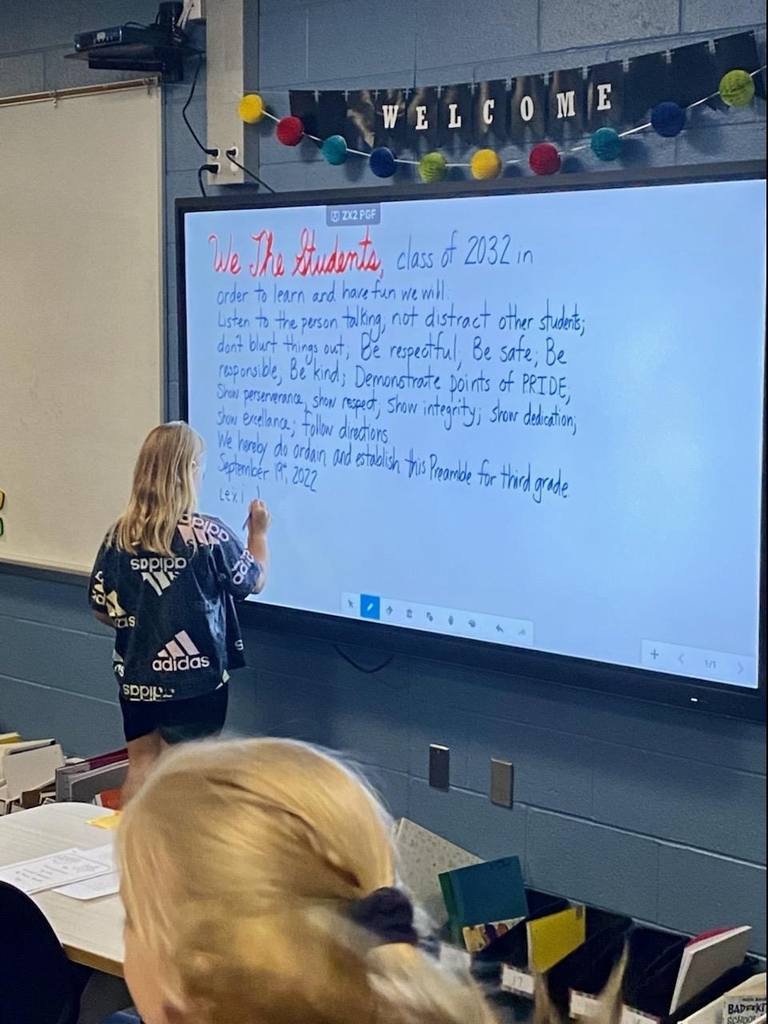 WELCOME
ZX2 PGF
We The Students, class of 2032 in
order to learn and have fun we will:
Listen to the person talking; not distract other students;
don't blurt things out; Be respectful; Be safe; Be
responsible; Be kind; Demonstrate points of PRIDE;
Show perserverance, show respect; show integrity; show dedication;
Show excellance; follow directions
We hereby do ordain and establish this Preamble for third grade.
September 19th, 2022
Lexi
adidas
adidas
adidas
adidas
1/1
17
SCHOOL